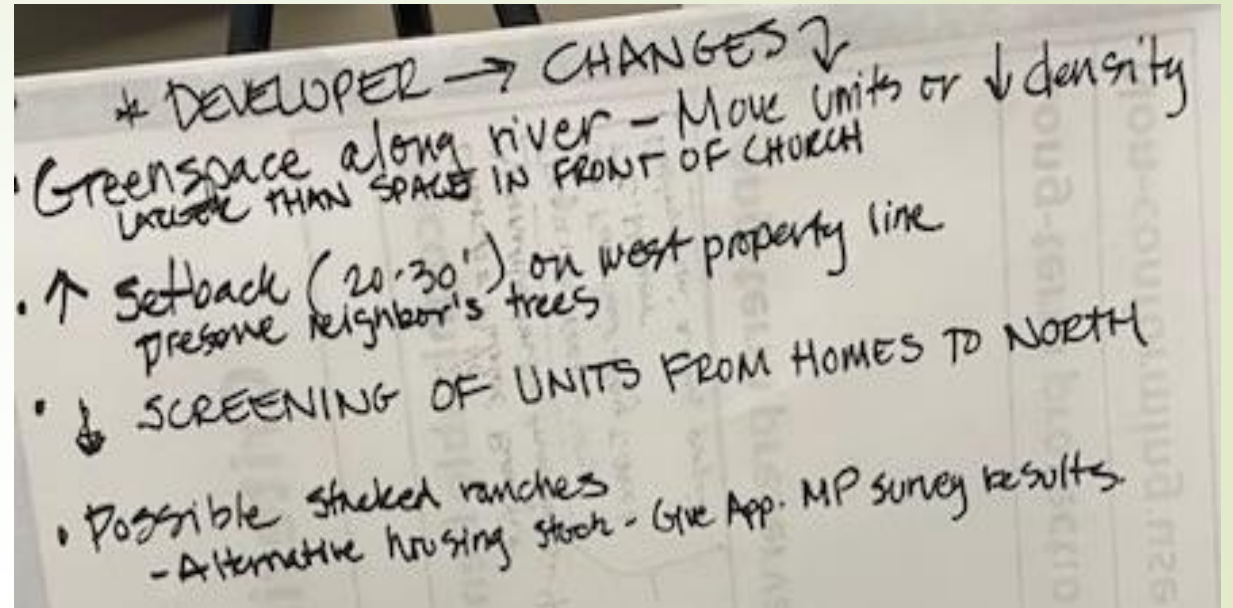 * DEVELOPER → CHANGES ↓
• Greenspace along river - Move units or ↓ density
LARGER THAN SPACE IN FRONT OF CHURCH
• ↑ Setback (20-30') on west property line
preserve neighbor's trees
• SCREENING OF UNITS FROM HOMES TO NORTH
• Possible stacked ranches
- Alternative housing stock - Give App. MP survey results.